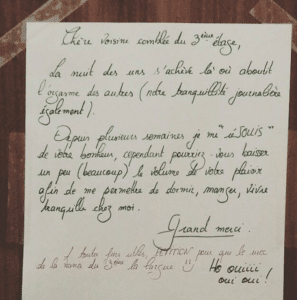 Chère voisine comblée du 3ème étage,
La nuit des uns s'achève là où aboutit
l'orgasme des autres (notre tranquillité journalière
également).
Depuis plusieurs semaines je me "réJOUIS"
de votre bonheur, cependant pourriez-vous baisser
un peu (beaucoup) le volume de votre plaisir
afin de me permettre de dormir, manger, vivre
tranquille chez moi.
Grand merci.
A toutes fins utiles, PETITION pour que le mec
de la nana du 3ème la largue !!
Ho ouiiii
oui oui !